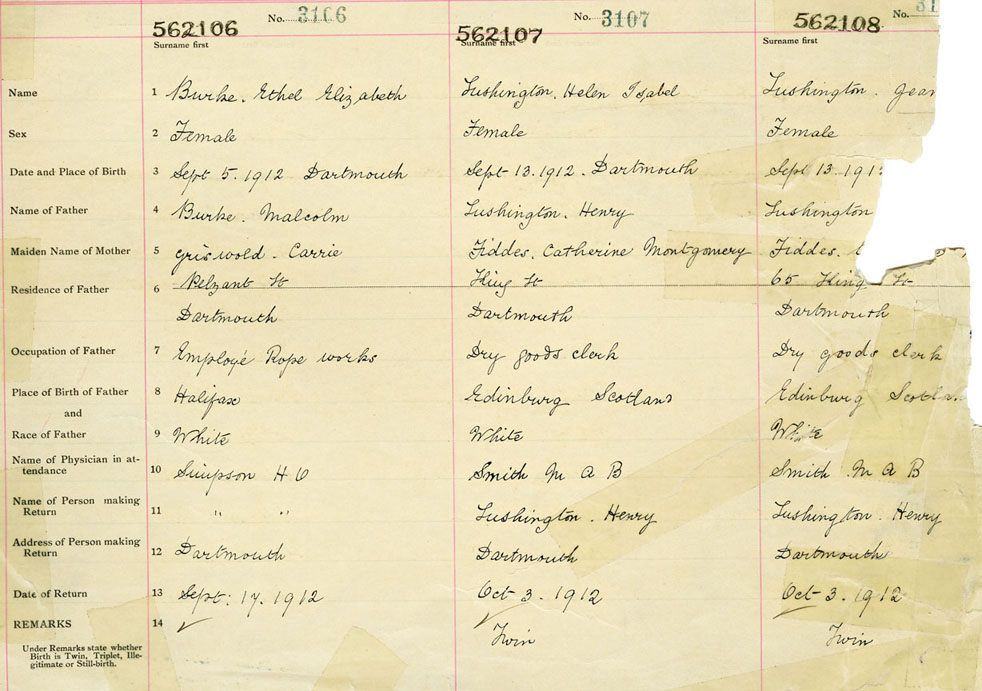 No. 3106 No. 3107 No. 31
562106 562107 562108
Surname first Surname first Surname first
Name 1 Burke. Ethel Elizabeth Lushington. Helen Isabel Lushington.
Sex 2 Female Female Female
Date and Place of Birth 3 Sept 5. 1912 Dartmouth Sept 13. 1912. Dartmouth Sept 13 191
Name of Father 4 Burke. Malcolm Lushington. Henry Lushington
Maiden Name of Mother 5 Griswold. Carrie Fiddes. Catherine Montgomery Fiddes.
Residence of Father 6 St King St 65 King St
Dartmouth Dartmouth Dartmouth
Occupation of Father 7 Employé Rope works Dry goods clerk Dry goods clerk
Place of Birth of Father 8 Halifax Edinburg Scotland Edinburg Scotla
and
Race of Father 9 White White White
Name of Physician in at-
tendance 10 Simpson H O Smith M A B Smith M A B
Name of Person making
Return 11 " " Lushington. Henry Lushington. Henry
Address of Person making
Return 12 Dartmouth Dartmouth Dartmouth
Date of Return 13 Sept: 17. 1912 Oct 3. 1912 Oct 3. 1912
REMARKS 14 ✓ ✓ ✓
Twin Twin
Under Remarks state whether
Birth is Twin, Triplet, Ille-
gitimate or Still-birth.